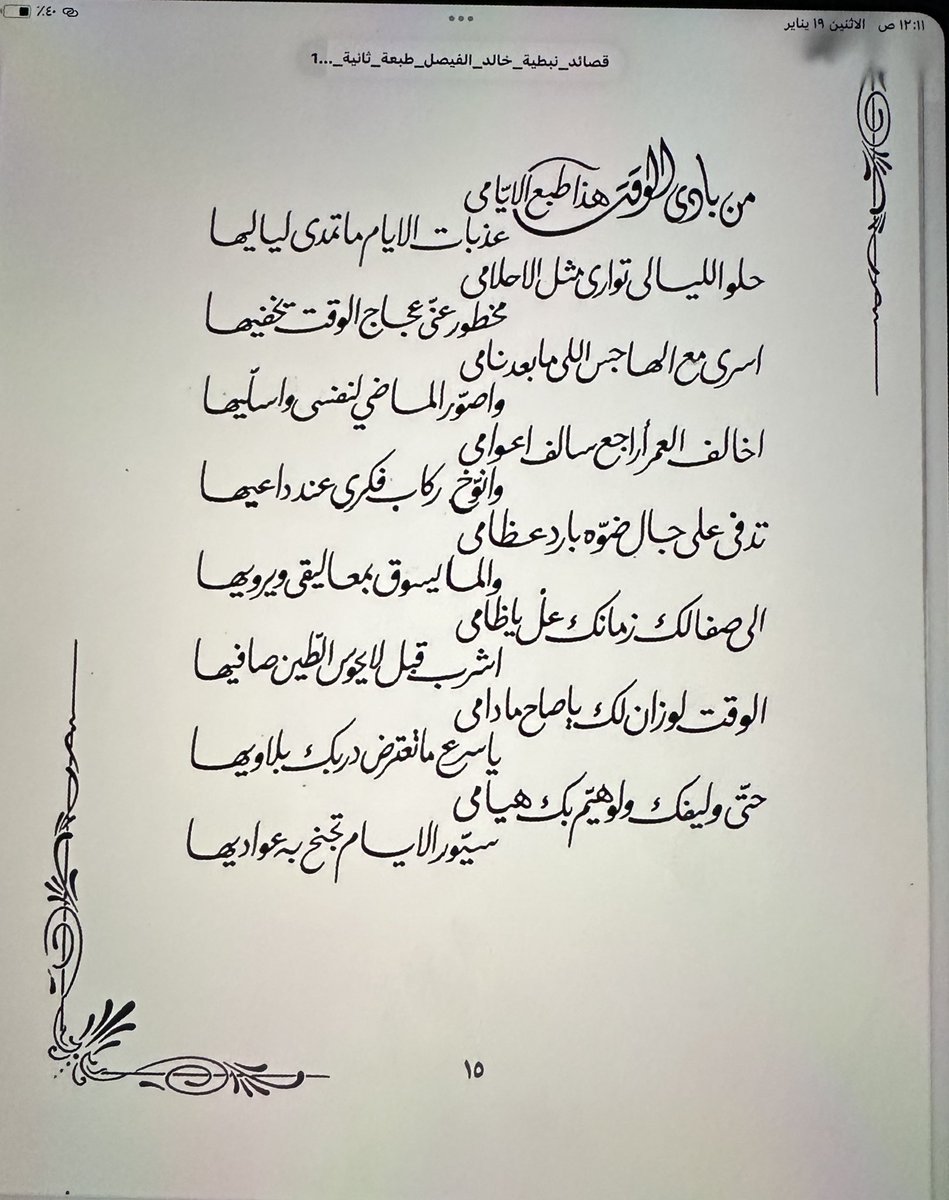 ١٢:١١ ص الاثنين ١٩ يناير
٪٤٠
قصائد_نبطية_خالد_الفيصل_طبعة_ثانية_...1
من بادى الوقت هذا طبع الايّامى
عذبات الايام ماتمدى لياليها
حلو الليالى توارى مثل الاحلامى
مخطور عنّى عجاج الوقت تخفيها
اسرى مع الهاجس اللى مابعد نامى
واصوّر الماضي لنفسى واسلّيها
اخالف العمر أراجع سالف اعوامى
وانوّخ ركاب فكرى عند داعيها
تدفى على جال ضوّه بارد عظامى
والما يسوق بمعاليقى ويرويها
الى صفالك زمانك علْ ياظامى
اشرب قبل لايحوس الطّين صافيها
الوقت لوزان لك ياصاح مادامى
ياسرع ماتعترض دربك بلاويها
حتّى وليفك ولو هيّم بك هيامى
سيّور الايام تجنح به عواديها
١٥